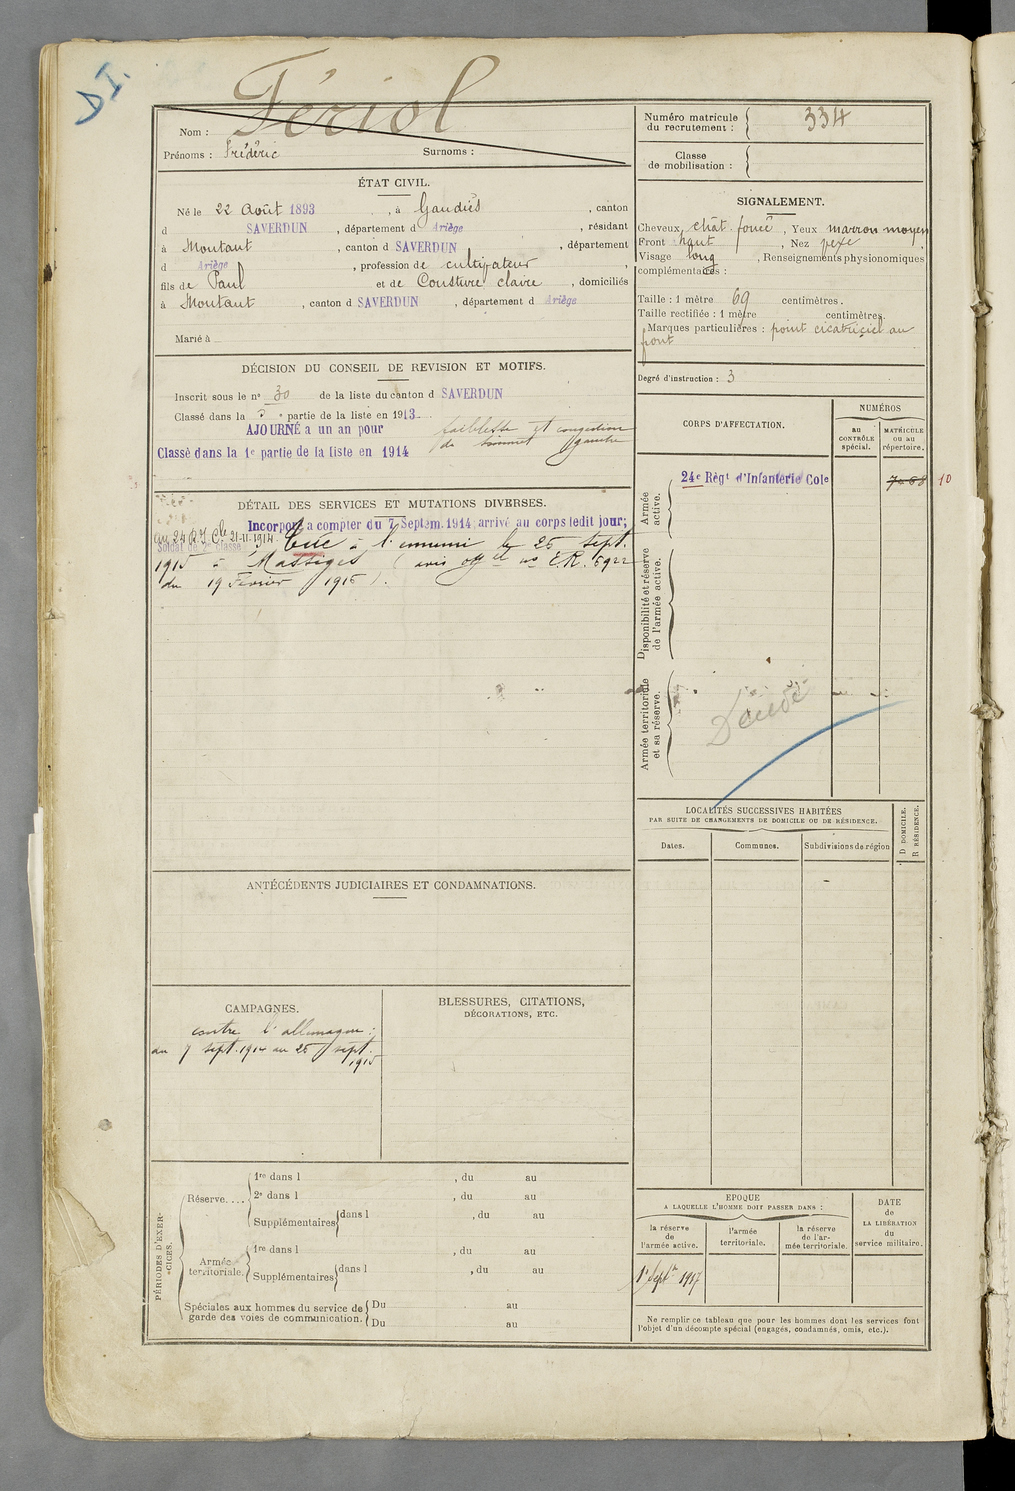 DI.
Fériol
Nom :
Prénoms : Frédéric Surnoms :
Numéro matricule
du recrutement : 334
Classe
de mobilisation :
ÉTAT CIVIL.
Né le 22 Août 1893, à Gaudiès, canton
d SAVERDUN, département d Ariège, résidant
à Montaut, canton d SAVERDUN, département
d Ariège, profession de cultivateur,
fils de Paul et de Cousture claire, domiciliés
à Montaut, canton d SAVERDUN, département d Ariège
Marié à
SIGNALEMENT.
Cheveux chât. foncé, Yeux marron moyen
Front haut, Nez vexe
Visage long, Renseignements physionomiques
complémentaires :
Taille : 1 mètre 69 centimètres.
Taille rectifiée : 1 mètre centimètres.
Marques particulières : point cicatriciel au
front
Degré d'instruction : 3
DÉCISION DU CONSEIL DE REVISION ET MOTIFS.
Inscrit sous le n° 30 de la liste du canton d SAVERDUN
Classé dans la partie de la liste en 1913.
AJOURNÉ à un an pour faiblesse et congestion
du sommet gauche
Classé dans la 1e partie de la liste en 1914
CORPS D'AFFECTATION.
NUMÉROS
au
CONTRÔLE
spécial.
MATRICULE
ou au
répertoire.
Armée
active.
24e Régt d'Infanterie Cole
10
Disponibilité et réserve
de l'armée active.
Armée territoriale
et sa réserve.
Décédé
DÉTAIL DES SERVICES ET MUTATIONS DIVERSES.
Incorporé à compter du 7 Septem. 1914 arrivé au corps ledit jour;
au 24 R.I. Cle 21-11-1914.
Soldat de 2e classe
Tué à l'ennemi le 25 sept.
1915 à Massiges (avis offel no E.R. 6922
du 19 Février 1916).
LOCALITÉS SUCCESSIVES HABITÉES
PAR SUITE DE CHANGEMENTS DE DOMICILE OU DE RÉSIDENCE.
Dates.
Communes.
Subdivisions de région
D DOMICILE.
R RÉSIDENCE.
ANTÉCÉDENTS JUDICIAIRES ET CONDAMNATIONS.
CAMPAGNES.
contre l'allemagne :
du 7 sept. 1914 au 25 sept.
1915
BLESSURES, CITATIONS,
DÉCORATIONS, ETC.
PÉRIODES D'EXER-
CICES.
Réserve....
1re dans l , du au
2e dans l , du au
Supplémentaires dans l , du au
Armée
territoriale.
1re dans l , du au
Supplémentaires dans l , du au
Spéciales aux hommes du service de
garde des voies de communication.
Du au
Du au
EPOQUE
A LAQUELLE L'HOMME DOIT PASSER DANS :
la réserve
de
l'armée active.
l'armée
territoriale.
la réserve
de l'ar-
mée territoriale.
DATE
de
LA LIBÉRATION
du
service militaire.
1r Septre 1917
Ne remplir ce tableau que pour les hommes dont les services font
l'objet d'un décompte spécial (engagés, condamnés, omis, etc.).